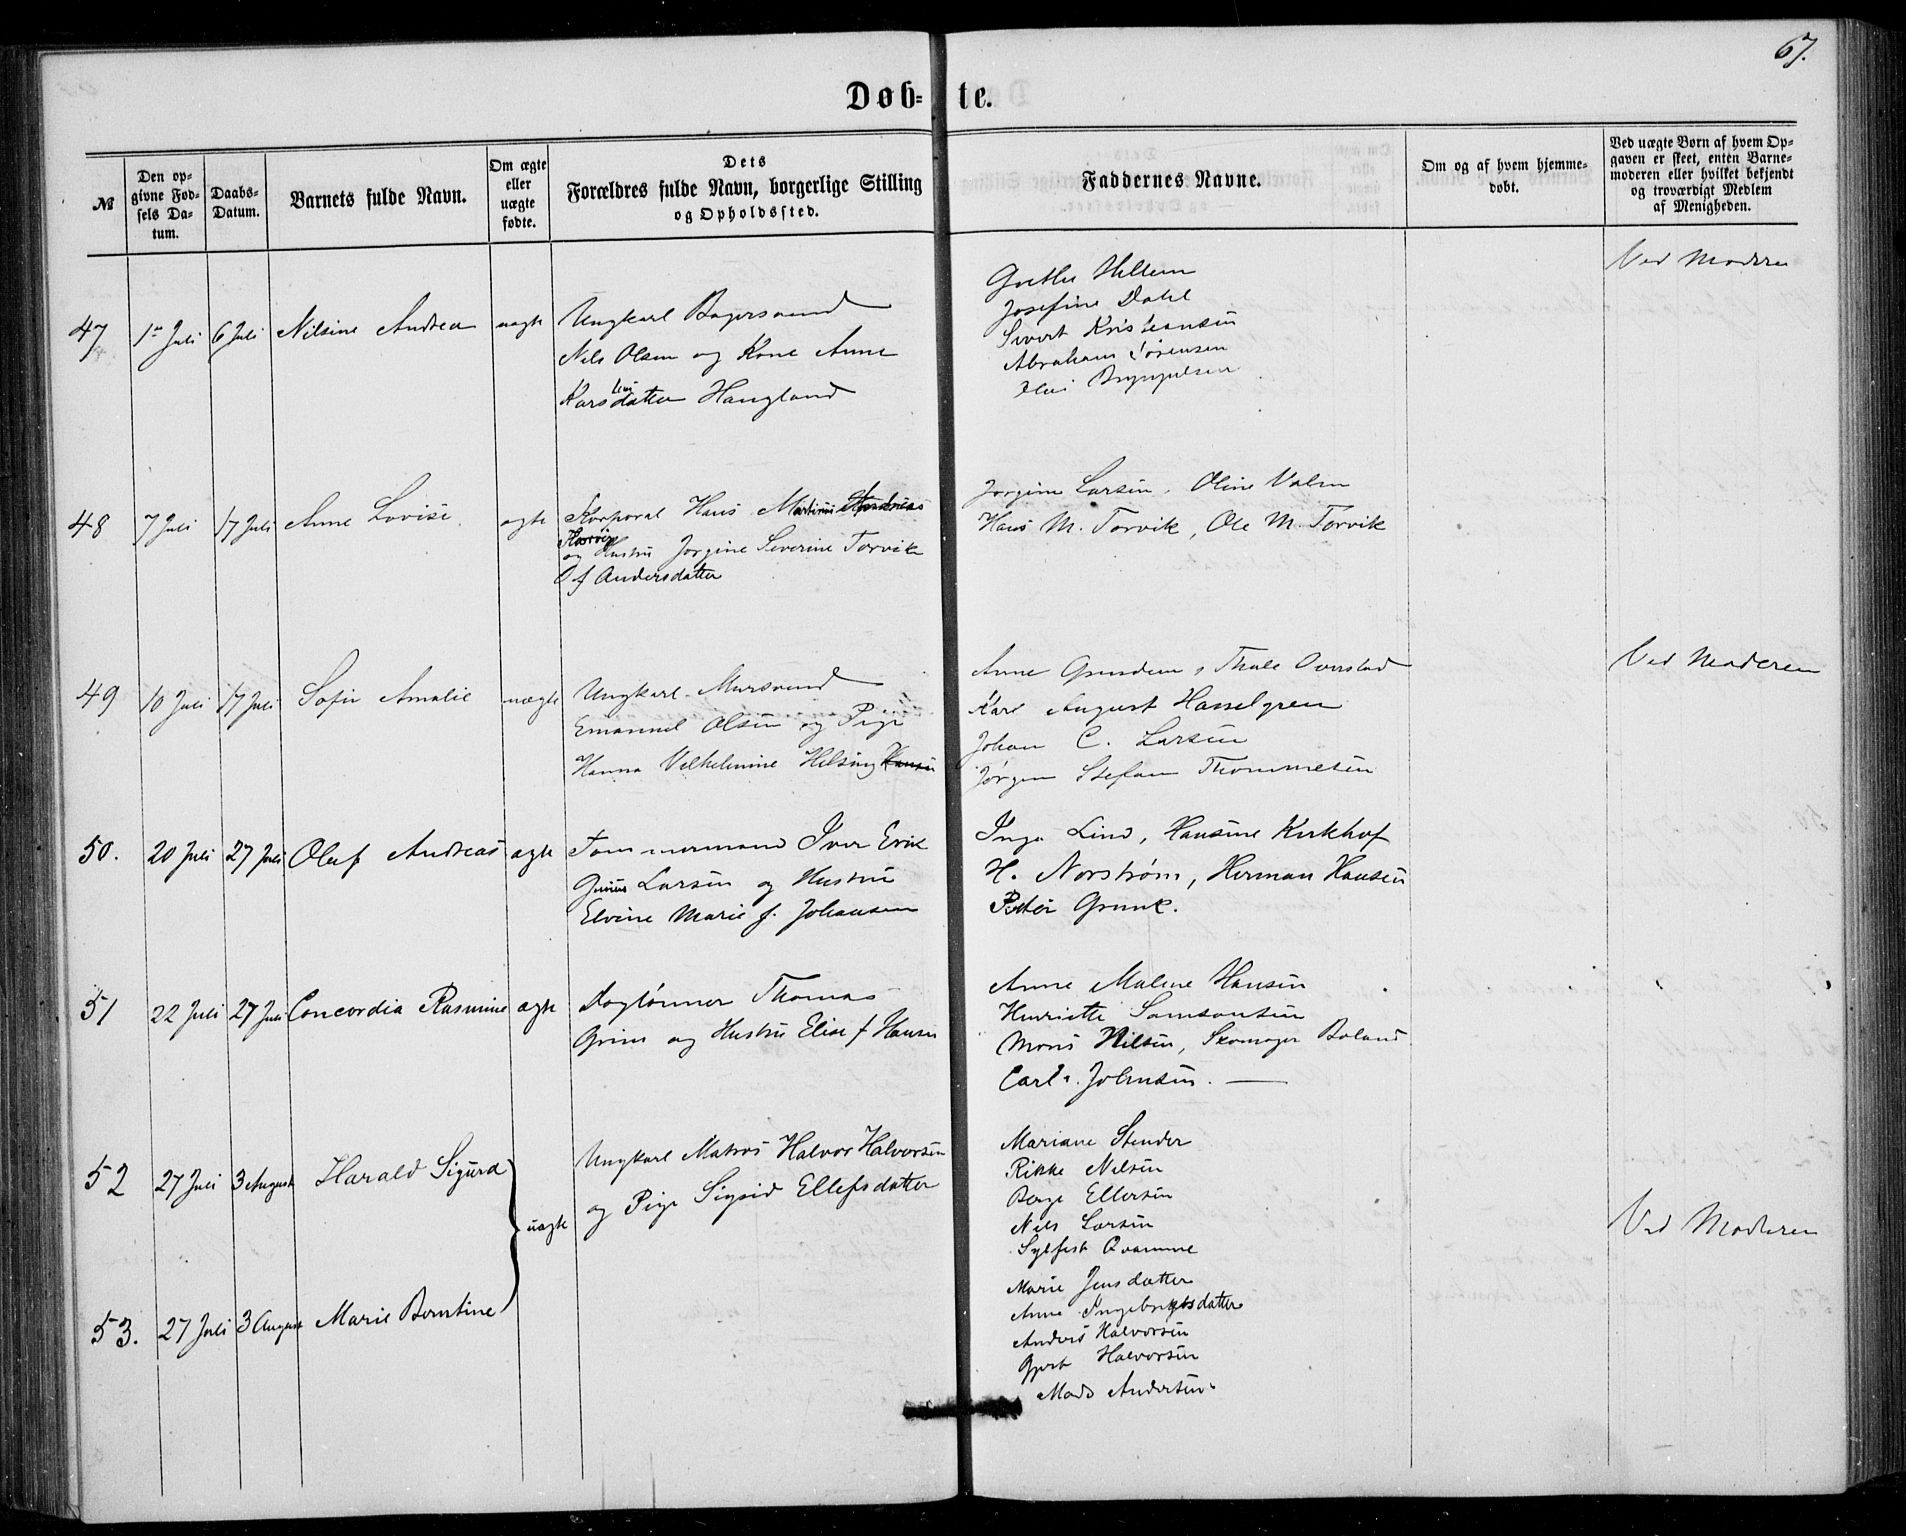 67.
Døb- te.
№
Den op-
givne Fød-
sels Da-
tum.
Daabs-
Datum.
Barnets fulde Navn.
Om ægte
eller
uægte
fødte.
Dets
Forældres fulde Navn, borgerlige Stilling
og Opholdssted.
Faddernes Navne.
Om og af hvem hjemme-
døbt.
Ved uægte Børn af hvem Op-
gaven er skeet, enten Barne-
moderen eller hvilket bekjendt
og troværdigt Medlem
af Menigheden.
47 1ste Juli 6 Juli Nilsine Andrea uægte
Ungkarl Bagersvend
Nils Olsen og Kone Anne
Karsdatter Haugland
Grethe Hellem
Josefine Dahl
Sivert Kristiansen
Abraham Sørensen
Brynjulsen
Ved Moderen
48 7 Juli 17 Juli Anne Lovise ægte
Korporal Hans Martinus Andreas
og Hustru Jorgine Severine Torvik
f Andersdatter
Jorgine Larsen, Oline Valen
Hans M. Torvik, Ole M. Torvik
49 10 Juli 17 Juli Sofie Amalie uægte
Ungkarl Mursvend
Emanuel Olsen og Pige
Hanna Vilhelmine Helsing Hansen
Anne Grindem, Thale Overstad
Karl August Hasselgren
Johan C. Larsen
Jørgen Stefan Thommesen
Ved Moderen
50. 20 Juli 27 Juli Oluf Andreas ægte
Tommermand Iver Erik
Larsen og Hustru
Elvine Marie f. Johansen
Inga Lind, Hansine Kirkhof
H. Norstrøm, Herman Hansen
Peter Grunk.
51 22 Juli 27 Juli Concordia Rasmine ægte
Daglønner Thomas
Grim og Hustru Elise f Hansen
Anne Malene Hansen
Henriette Samsonsen
Mons Nilsen, Skomager Boland
Carl Johnsen.
52 27 Juli 3 August Harald Sigurd
uægte
Ungkarl Matros Halvor Halvorsen
og Pige Sigrid Ellefsdatter
Mariane Stender
Rikke Nilsen
Berge Ellersen
Nils Larsen
Sylfest Qvamme
Ved Moderen
53. 27 Juli 3 August Marie Berntine
Marie Jensdatter
Anne Ingebrigtsdatter
Anders Halvorsen
Gjert Halvorsen
Mads Andersen